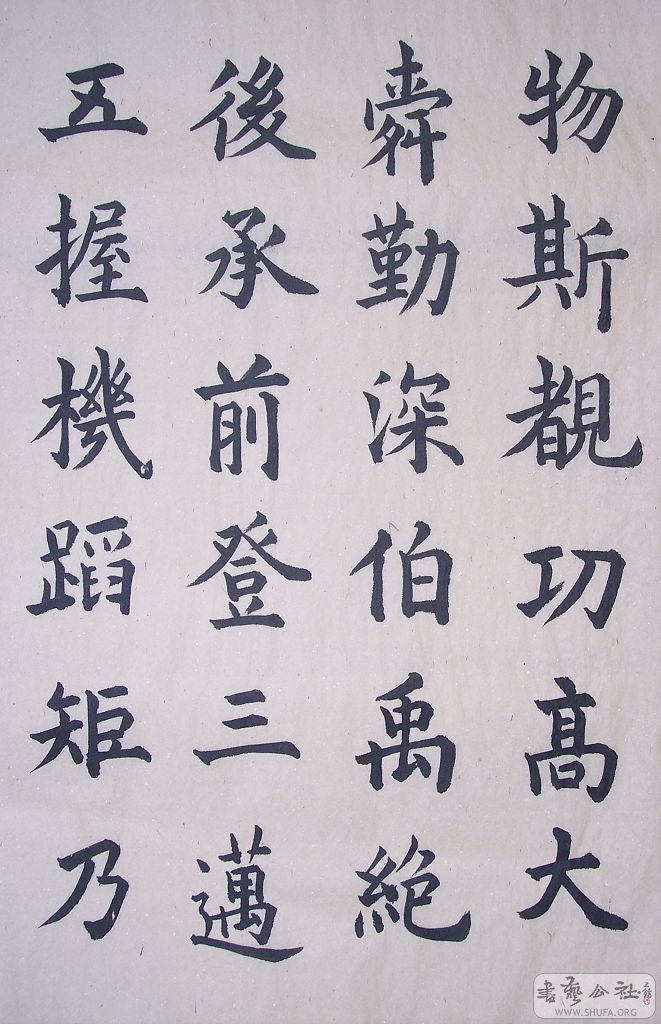 物斯覩功髙大
舜勤深伯禹絶
後承前登三邁
五握機蹈矩乃
書藝公社
WWW.SHUFA.ORG